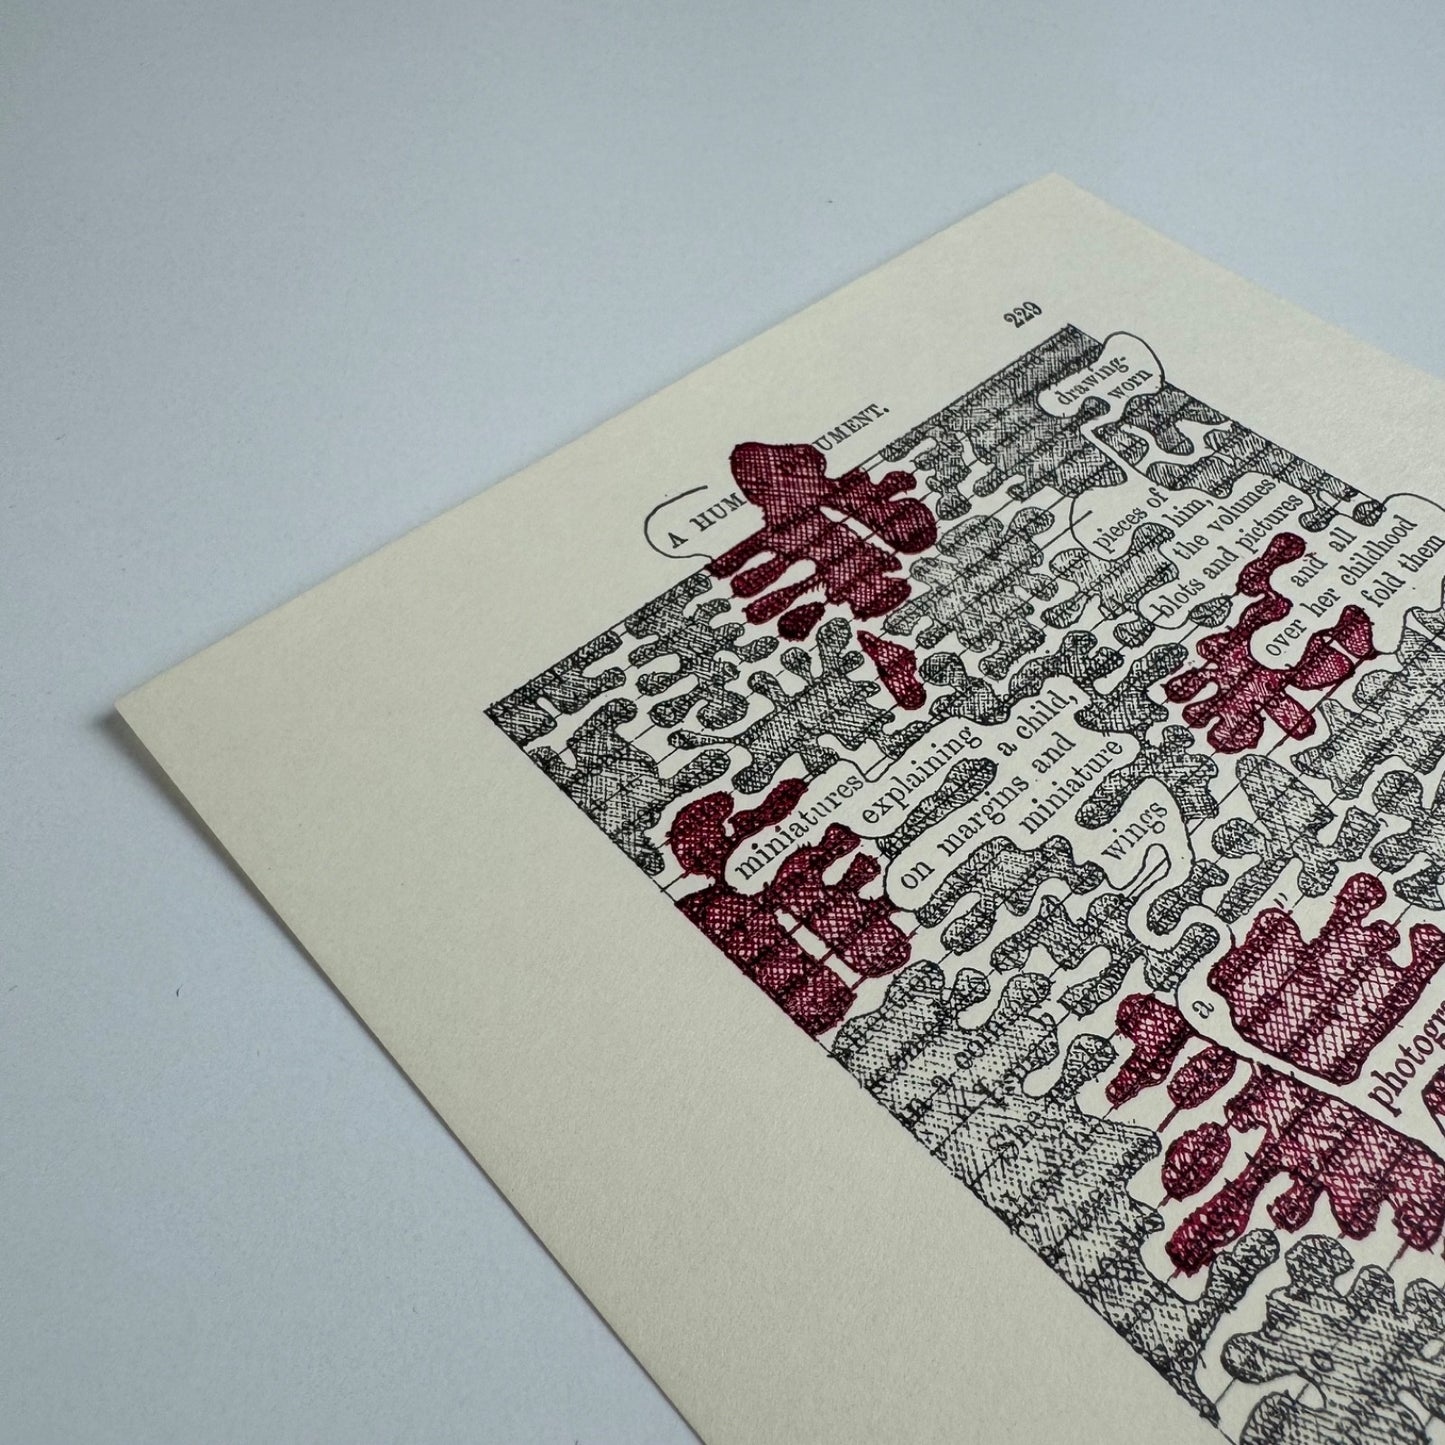 229
A HUM UMENT.
drawing-
worn
pieces of
him,
the volumes
blots and pictures
and all
over her childhood
fold them
miniatures
explaining a child,
on margins and
miniature
wings
a